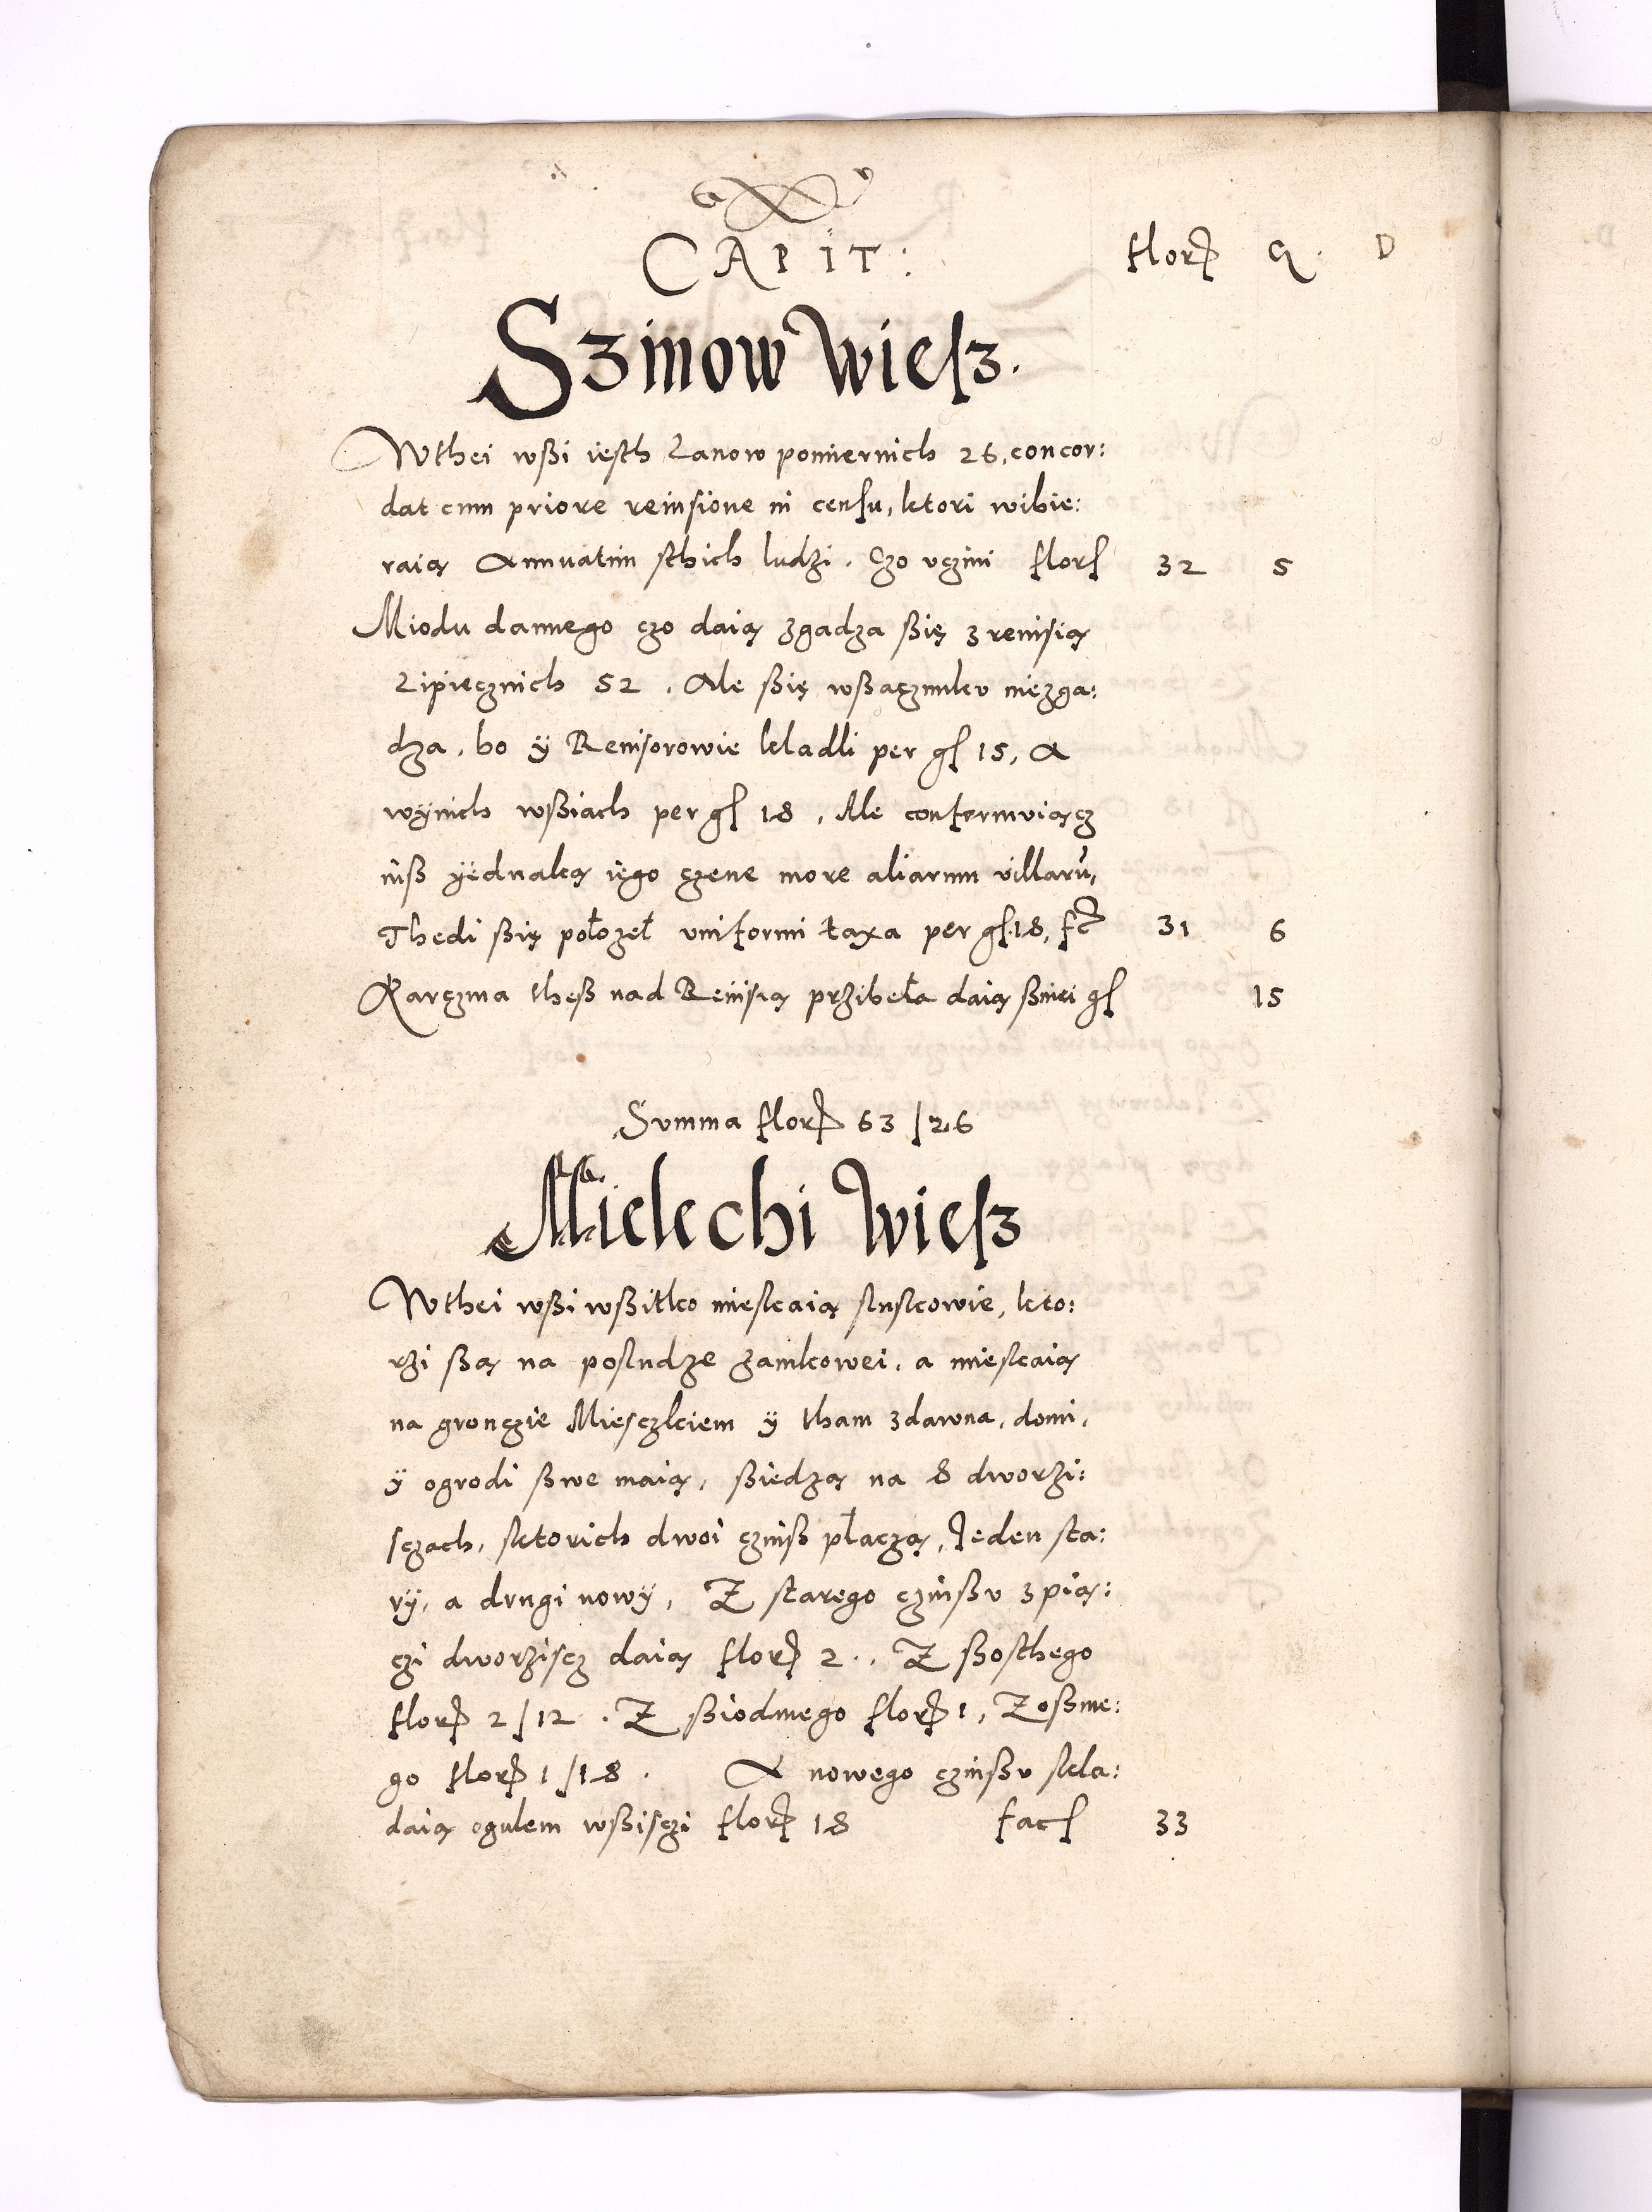 CAPIT: flor q. D
Szinow Wiesz.
Wthei wßi iesth Łanow pomiernich 26, concor:
dat cum priore reuisione in censu, ktori wibie:
raią Annuatim sthich ludzi. Czo vczini flor 32 5
Miodu dannego czo daią zgadza ßię z reuisią
Lipiecznich 52. Ale ßię wßaczunku niezga:
dza, bo ÿ Reuisorowie kladli per gſ 15, A
wÿnich wßiach per gſ 18, Ale confermuiącz
iuß ÿednaką iego czene more aliarum villarũ,
Thedi ßię położeł uniformi taxa per gſ 18, fcͭ 31 6
Karczma theß nad Reuisią przibeła daią ßniei gſ 15
Summa flor 63 / 26
Mielechi Wiesz
Wthei wßi wßitko mieskaią sluskowie, kto:
rzi ßą na posludze zamkowei, a mieskaią
na gronczie Miesczkiem ÿ tham zdawna, domi,
ÿ ogrodi ßwe maią, ßiedzą na 8 dworzi:
sczach, sktorich dwoi czinß płaczą, Jeden sta:
rÿ, a drugi nowÿ, Z starego czinßu z pią:
czi dworziscz daią flor 2.. Z ßosthego
flor 2 / 12. Z ßiodmego flor 1, Z oßme:
go flor 1 / 18. A nowego czinßu skla:
daią ogulem wßisczi flor 18 facſ 33